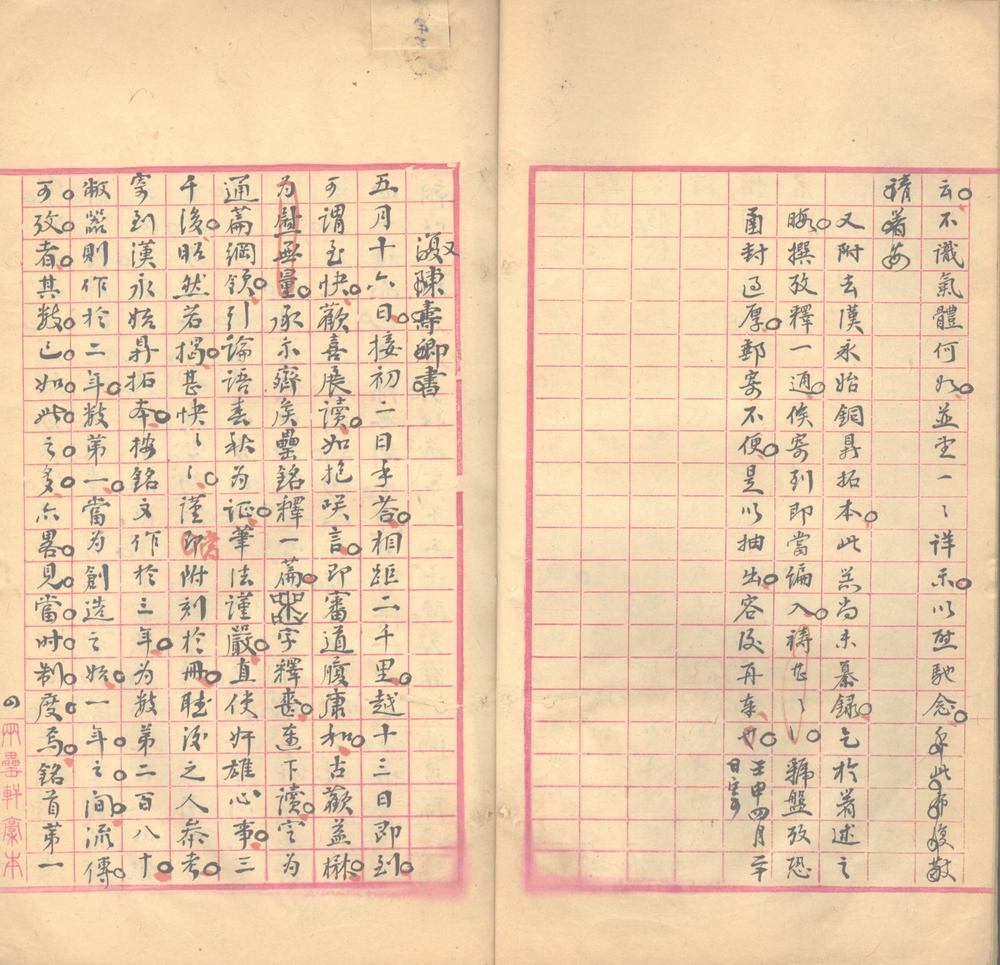 云不識氣體何如並望一〻詳示以慰馳念專此布復敬
請著安
又附去漢永始銅鼎拓本此器尚未摹錄乞於著述之
暇撰攷釋一通俟寄到即當編入禱甘〻虢盤攷恐
函封過厚郵寄不便是以抽出容後再奉也
壬申四月廿
日
復陳壽卿書
五月十六日接初二日手荅相距二千里越十三日即到
可謂至快歡喜展讀如抱咲言即審道履康和古歡益楙
為慰無量承示齊矦罍銘釋一篇字釋喪連下讀定為
通篇綱領引論語春秋為证筆法謹嚴直使奸雄心事三
千後昭然若揭甚快〻〻謹附刻於冊賸後之人叅考
寄到漢永始鼎拓本按銘文作於三年為數第二百八十
敝器則作於二年數第一當為創造之始一年之間流傳
可攷者其數已如此之多亦畧見當时制度焉銘首第一
兩罍軒稾本